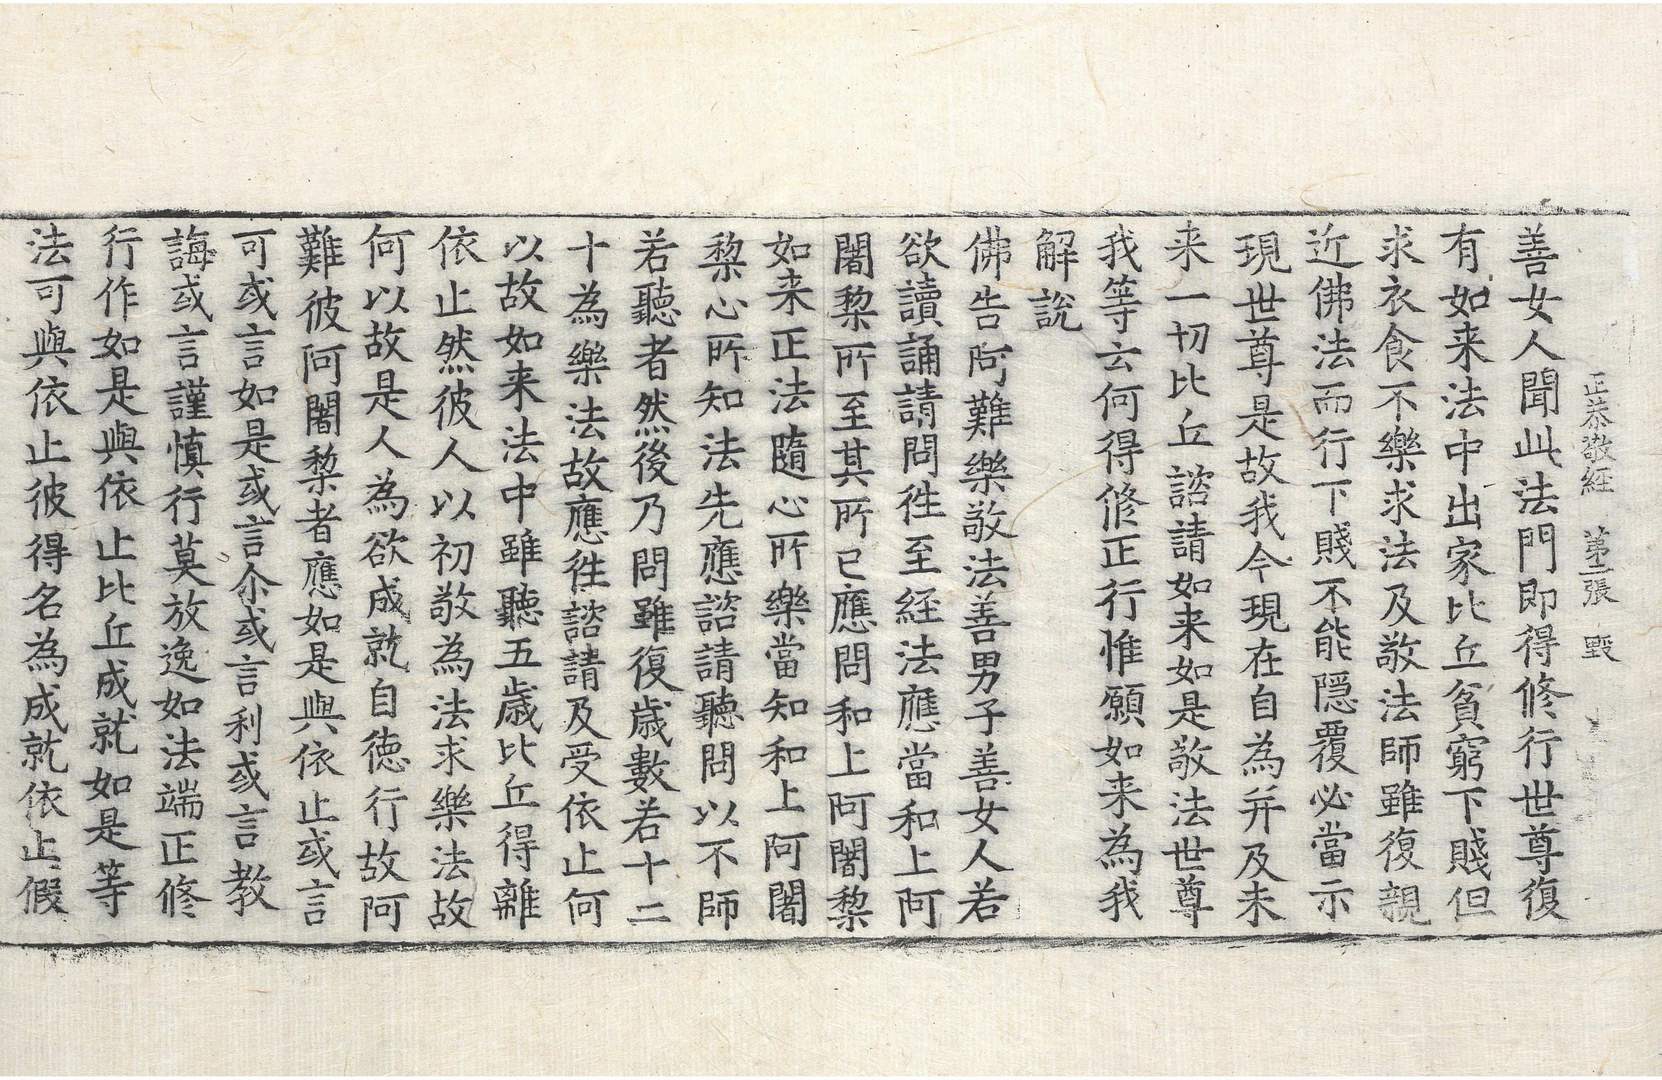 正恭敬經 第二張 毀
善女人聞此法門即得修行世尊復
有如来法中出家比丘貧窮下賤但
求衣食不樂求法及敬法師雖復親
近佛法而行下賤不能隱覆必當示
現世尊是故我今現在自為并及未
来一切比丘諮請如来如是敬法世尊
我等云何得修正行惟願如来為我
解說
佛告阿難樂敬法善男子善女人若
欲讀誦請問徃至経法應當和上阿
闍梨所至其所已應問和上阿闍梨
如来正法隨心所樂當知和上阿闍
梨心所知法先應諮請聽問以不師
若聽者然後乃問雖復歲數若十二
十為樂法故應徃諮請及受依止何
以故如来法中雖聽五歲比丘得離
依止然彼人以初敬為法求樂法故
何以故是人為欲成就自徳行故阿
難彼阿闍梨者應如是與依止或言
可或言如是或言尒或言利或言教
誨或言謹慎行莫放逸如法端正修
行作如是與依止比丘成就如是等
法可與依止彼得名為成就依止假